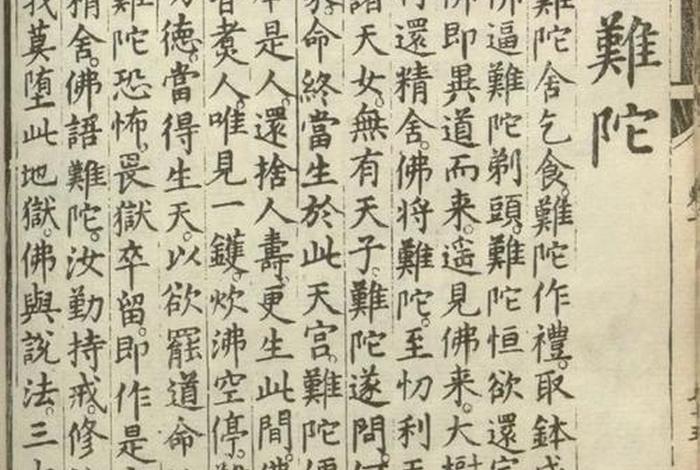 難陀
難陀舍乞食。難陀作禮。取鉢
佛逼難陀剃頭。難陀恒欲還
佛即異道而來。遥見佛來。大樹
還精舍。佛將難陀。至忉利
諸天女。無有天子。難陀遂問。
命終當生於此天宮。難陀
是人。還捨人壽。更生此間。
煑人。唯見一鑊。炊沸空停。
德。當得生天。以欲罷道命
難陀恐怖。畏獄卒留。即作是
精舍。佛語難陀。汝勤持戒。修
我莫堕此地獄。佛與說法。三